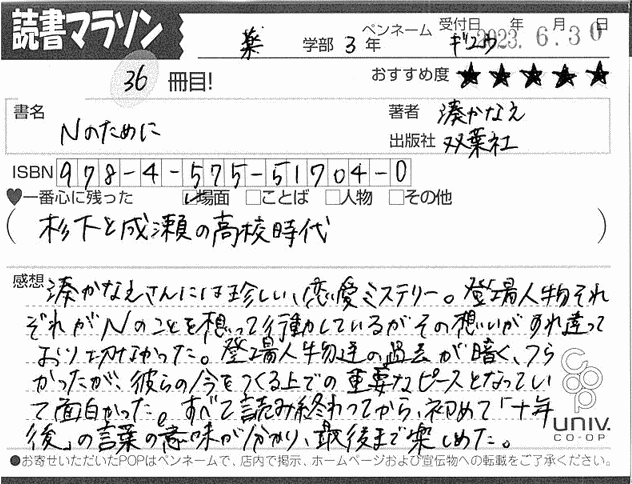 読書マラソン
薬 学部 3 年 ペンネーム ギユウ 受付日 年 月 日
2023. 6. 30
36 冊目!
おすすめ度 ★★★★★
書名 Nのために
著者 湊かなえ
出版社 双葉社
ISBN 978-4-575-51704-0
♥一番心に残った ☑場面 □ことば □人物 □その他
(杉下と成瀬の高校時代)
感想 湊かなえさんには珍しい、恋愛ミステリー。登場人物それ
ぞれがNのことを想って行動しているがその想いがすれ違って
おり切なかった。登場人物達の過去が暗く、つら
かったが、彼らの今をつくる上での重要なピースとなってい
て面白かった。すべて読み終わってから、初めて「十年
後」の言葉の意味が分かり、最後まで楽しめた。
coop
UNIV.
CO-OP
●お寄せいただいたPOPはペンネームで、店内で掲示、ホームページおよび宣伝物への転載をご了承ください。